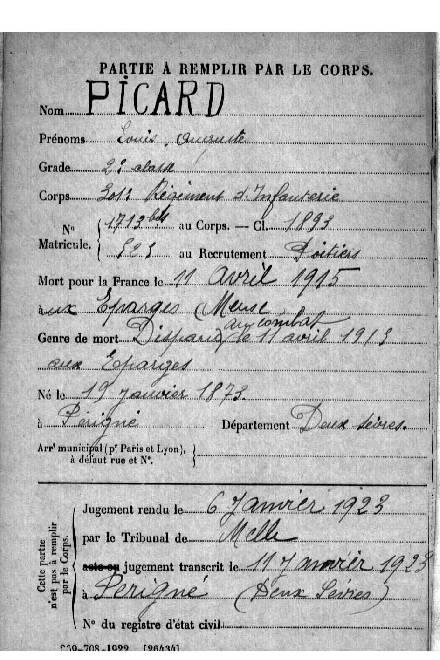 PARTIE À REMPLIR PAR LE CORPS.
Nom PICARD
Prénoms Louis, Auguste
Grade 2e classe
Corps Régiment d'Infanterie
N° Matricule. { 1713 bis au Corps. — Cl. 1893
au Recrutement Poitiers
Mort pour la France le 11 avril 1915
aux Eparges (Meuse)
au combat
Genre de mort Disparu le 11 avril 1915
aux Eparges
Né le 19 Janvier 1873.
à Périgné Département Deux Sèvres.
Arr' municipal (pr Paris et Lyon), à défaut rue et N°. }
Cette partie n'est pas à remplir par le Corps.
Jugement rendu le 6 Janvier 1923
par le Tribunal de Melle
acte ou jugement transcrit le 11 Janvier 1923
à Perigné (Deux Sèvres)
N° du registre d'état civil
708-1922. [26434]